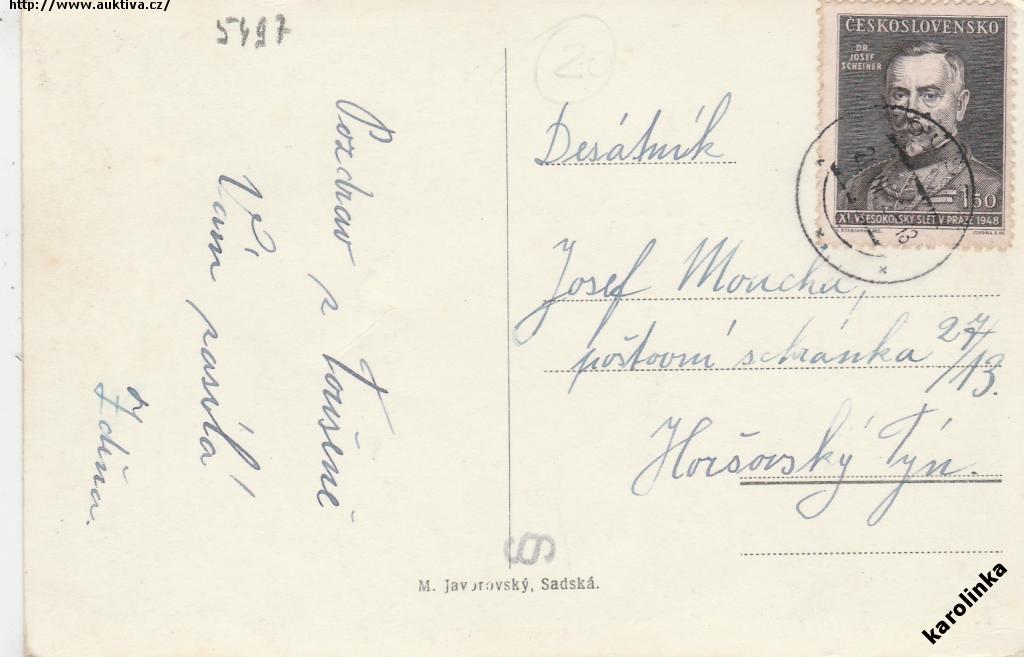 http://www.auktiva.cz/
5497
20
Pozdrav z Toušeně
Vám posílá
Zdeňa.
ČESKOSLOVENSKO
DR
JOSEF
SCHEINER
1·50
XI. VŠESOKOLSKÝ SLET V PRAZE 1948
Desátník
Josef Moucha,
poštovní schránka 27/13.
Horšovský Týn.
§
M. Javorovský, Sadská.
karolinka